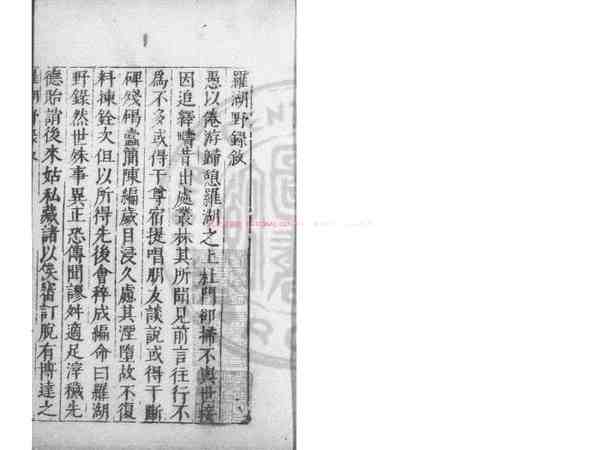 羅湖野錄敘
愚以倦游歸憩羅湖之上杜門卻掃不與世接
因追繹疇昔出處叢林其所聞見前言往行不
爲不多或得于尊宿提唱朋友談說或得于斷
碑殘碣蠹簡陳編歲月浸久慮其湮墮故不復
料揀銓次但以所得先後會稡成編命曰羅湖
野錄然世殊事異正恐傳聞謬舛適足滓穢先
德貽誚後來姑私藏諸以俟審訂脫有博達之
羅湖野錄敘